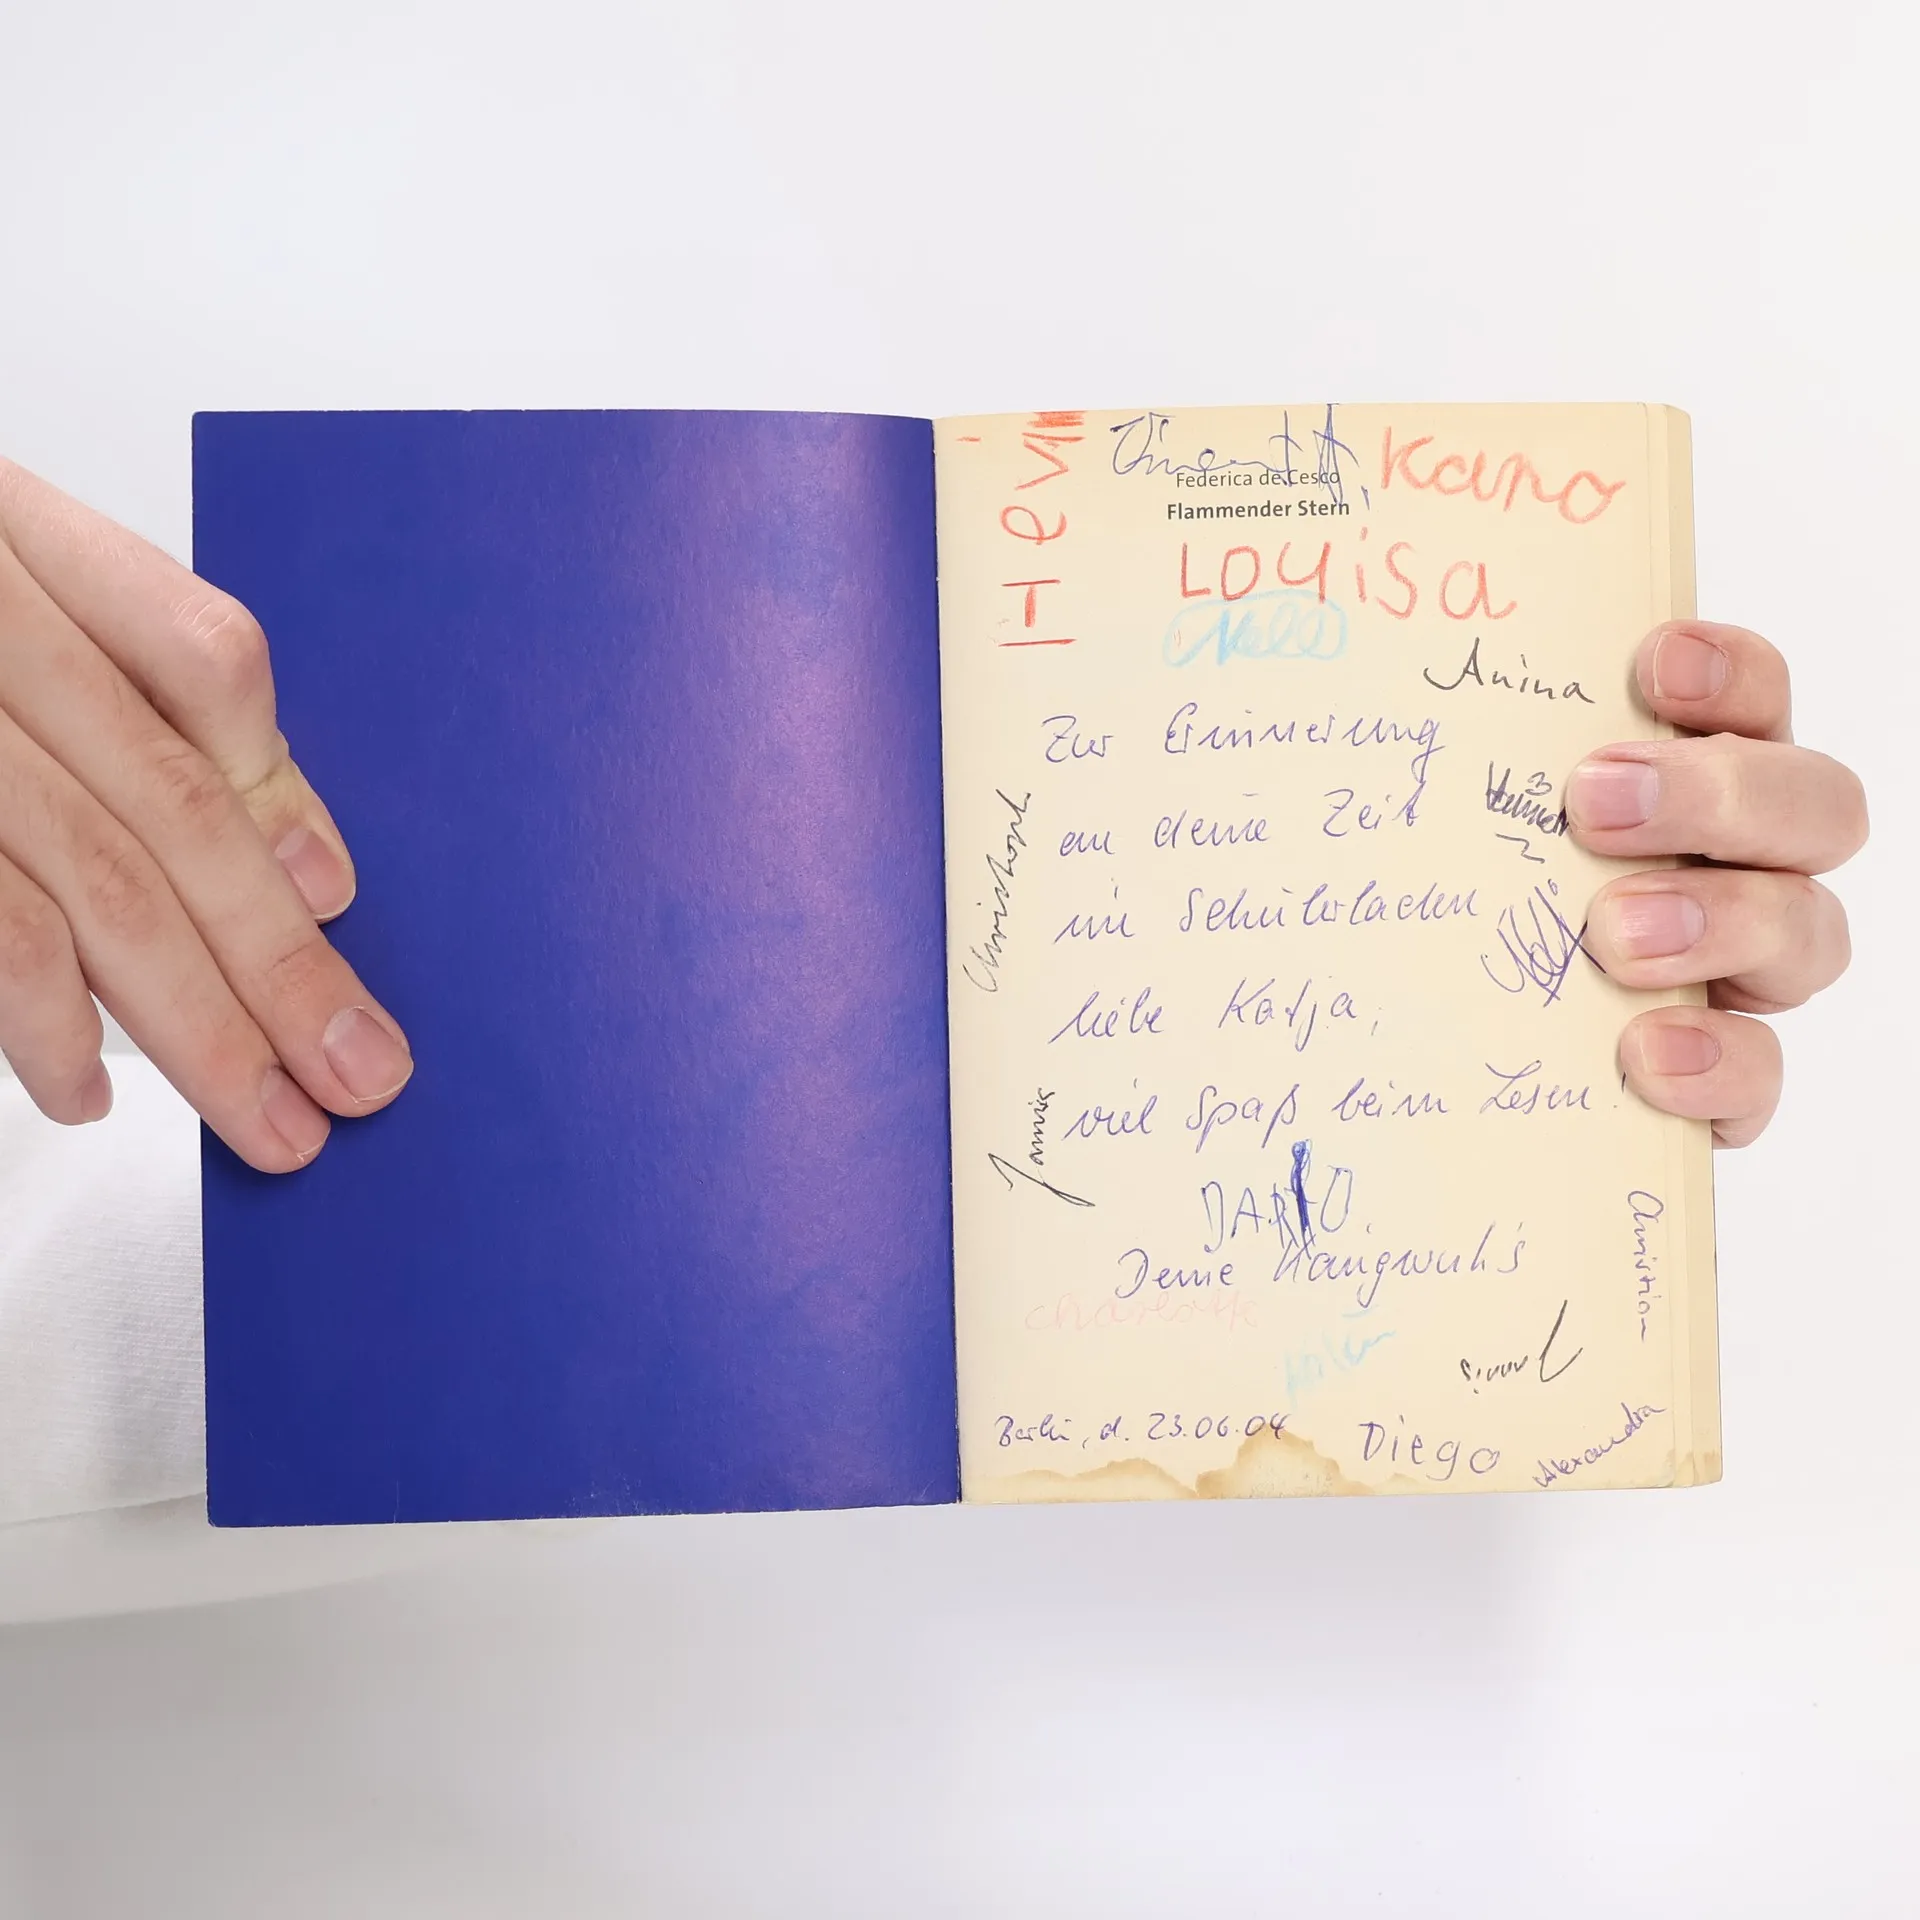 Vincent A.
Karo
Hevin
Federica de Cesco
Flammender Stern
Louisa
Nele
Anina
Zur Erinnerung
an deine Zeit
im Schülerladen
liebe Katja,
viel Spaß beim Lesen!
Christoph
Jannis
DARIO
Deine Kaigwuhs
Charlotte
Christian
Berlin, d. 23.06.04
Diego
Alexandra